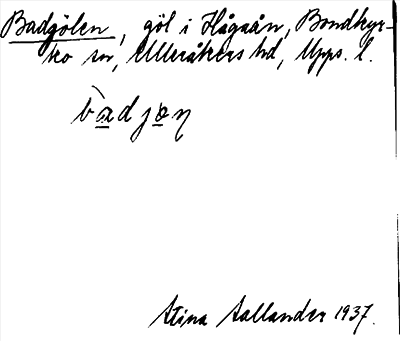 Badgölen, göl i Hågaån, Bondkyr-
ko sn, Ulleråkers hd, Upps. l.
bàdjøn
Stina Sallander 1937.